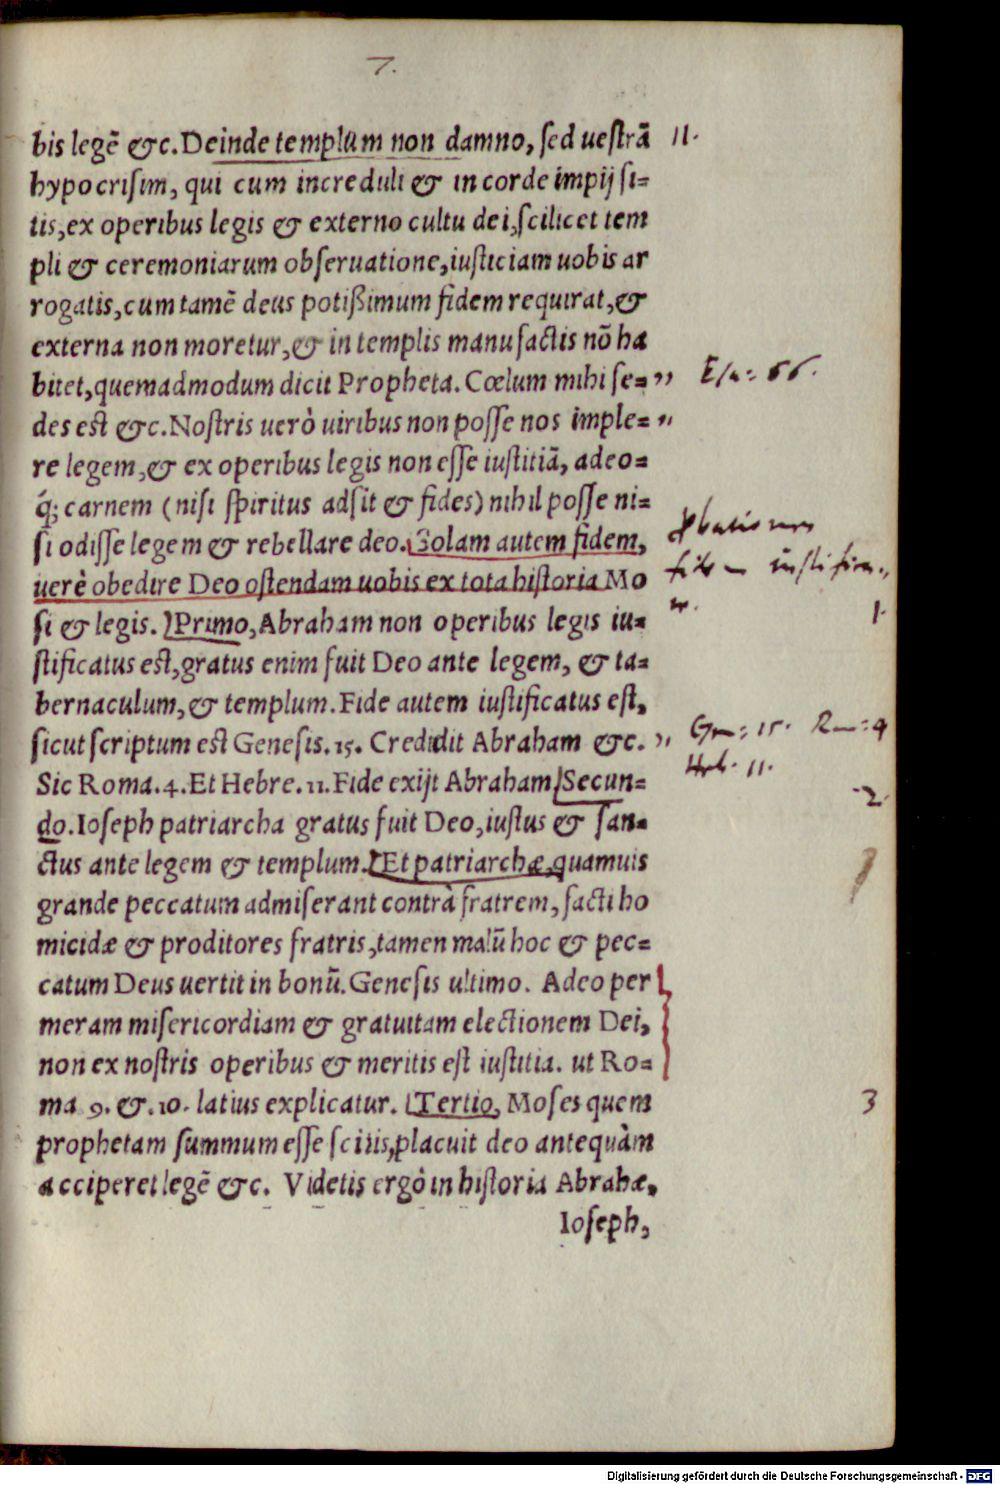 7.
bis legẽ &c. Deinde templum non damno, sed uestrã II.
hypocrisim, qui cum increduli & in corde impij si=
tis, ex operibus legis & externo cultu dei, scilicet tem
pli & ceremoniarum obseruatione, iusticiam uobis ar
rogatis, cum tamẽ deus potißimum fidem requirat, &
externa non moretur, & in templis manufactis nõ ha
bitet, quemadmodum dicit Propheta. Cœlum mihi se= ,, Esa: 66.
des est &c. Nostris uerò uiribus non posse nos imple= ,,
re legem, & ex operibus legis non esse iustitiã, adeo=
q́; carnem (nisi spiritus adsit & fides) nihil posse ni=
si odisse legem & rebellare deo. Solam autem fidem,
uerè obedire Deo ostendam uobis ex tota historia Mo
si & legis. Primo, Abraham non operibus legis iu= 1.
stificatus est, gratus enim fuit Deo ante legem, & ta=
bernaculum, & templum. Fide autem iustificatus est,
sicut scriptum est Genesis. 15. Credidit Abraham &c. ,, Gen: 15. Rom: 4
Heb. 11.
Sic Roma. 4. Et Hebre. 11. Fide exijt Abraham Secun= 2
do. Ioseph patriarcha gratus fuit Deo, iustus & san=
ctus ante legem & templum. Et patriarchæ, quamuis
grande peccatum admiserant contrà fratrem, facti ho
micidæ & proditores fratris, tamen malũ hoc & pec=
catum Deus uertit in bonũ. Genesis ultimo. Adeo per
meram misericordiam & gratuitam electionem Dei,
non ex nostris operibus & meritis est iustitia. ut Ro=
ma 9. &. 10. latius explicatur. Tertio, Moses quem 3
prophetam summum esse scitis, placuit deo antequàm
acciperet legẽ &c. Videtis ergò in historia Abrahæ,
Ioseph,
Digitalisierung gefördert durch die Deutsche Forschungsgemeinschaft - DFG